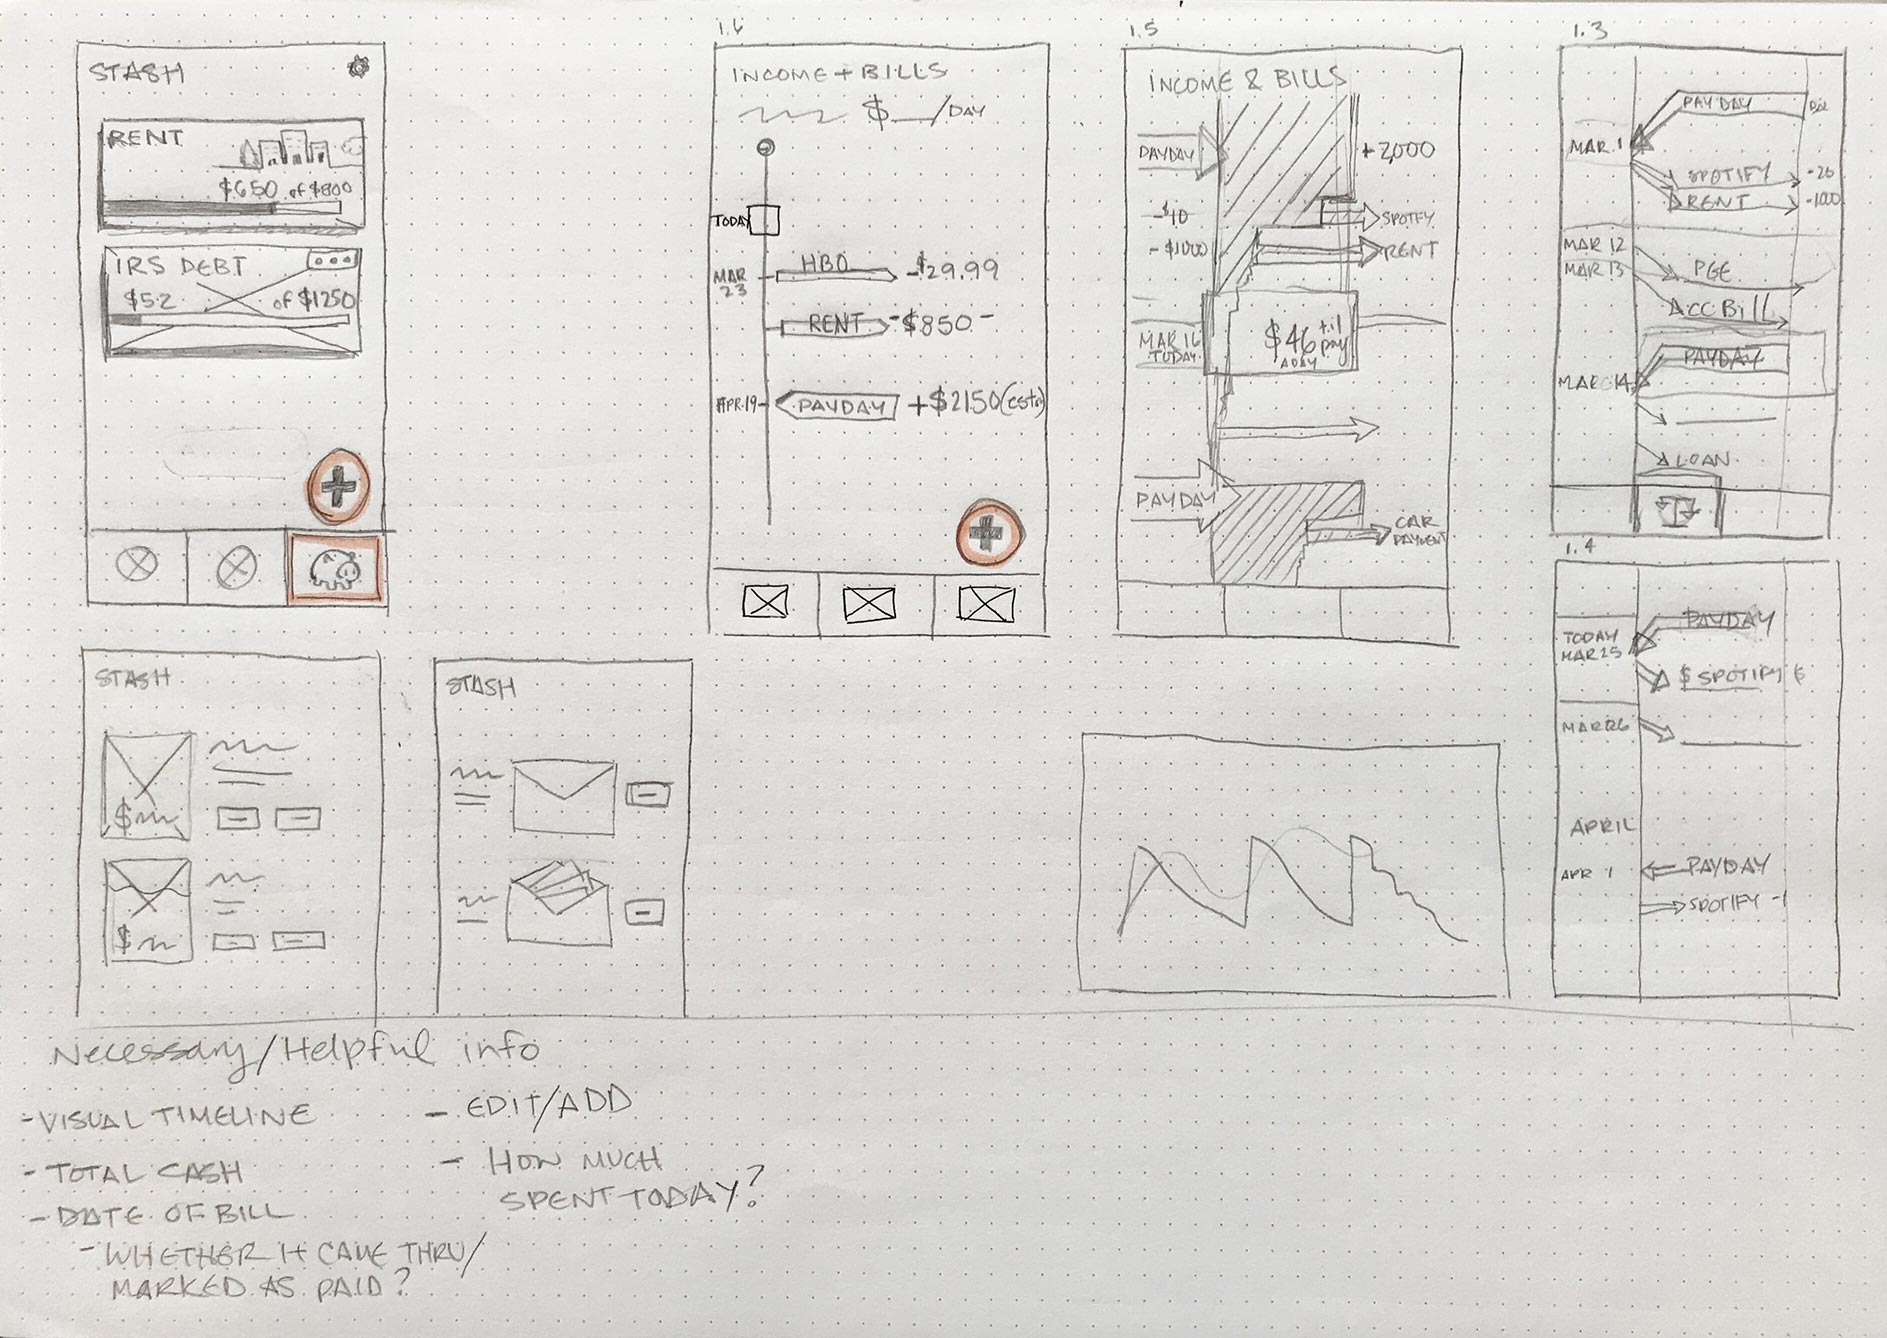 STASH
RENT
$650 of $800
IRS DEBT
$52 of $1250
INCOME + BILLS
$__/DAY
TODAY
MAR 23
HBO
-$29.99
RENT
-$850-
APR.19
PAYDAY
+$2150(est)
1.5
INCOME & BILLS
PAYDAY
+2,000
-$10
SPOTIFY
-$1000
RENT
MAR 16
TODAY
$46 til pay
A DAY
PAYDAY
CAR
PAYMENT
1.3
PAYDAY
MAR 1
SPOTIFY
-20
RENT
-1000
MAR 12
MAR 13
PGE
CC BILL
PAYDAY
MAR 14
LOAN
1.4
PAYDAY
TODAY
MAR 25
$ SPOTIFY
MAR 26
APRIL
APR 1
PAYDAY
SPOTIFY -1
STASH
$
$
STASH
Necessary/Helpful info
- VISUAL TIMELINE
- TOTAL CASH
- DATE OF BILL
- WHETHER IT CAME THRU/
MARKED AS PAID?
- EDIT/ADD
- HOW MUCH
SPENT TODAY?